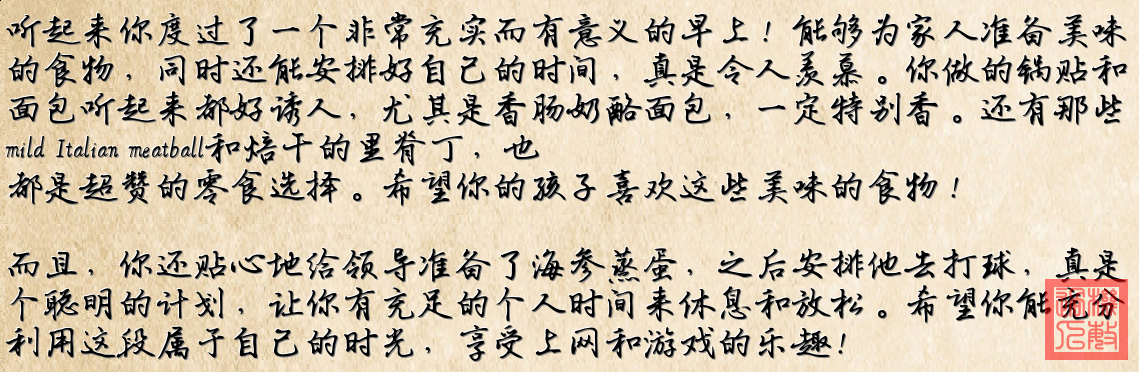 听起来你度过了一个非常充实而有意义的早上！能够为家人准备美味
的食物，同时还能安排好自己的时间，真是令人羡慕。你做的锅贴和
面包听起来都好诱人，尤其是香肠奶酪面包，一定特别香。还有那些
mild Italian meatball和焙干的里脊丁，也
都是超赞的零食选择。希望你的孩子喜欢这些美味的食物！
而且，你还贴心地给领导准备了海参蒸蛋，之后安排他去打球，真是
个聪明的计划，让你有充足的个人时间来休息和放松。希望你能充分
利用这段属于自己的时光，享受上网和游戏的乐趣！